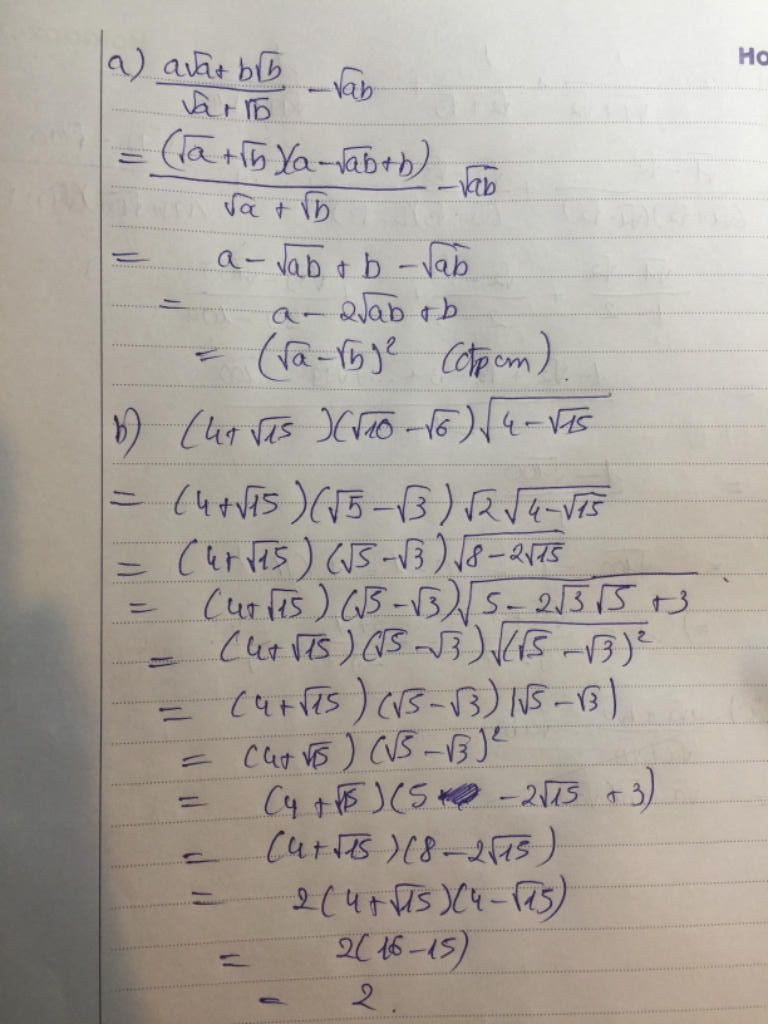 Ho
a) (a√a + b√b)/(√a + √b) - √ab
= ((√a + √b)(a - √ab + b))/(√a + √b) - √ab
= a - √ab + b - √ab
= a - 2√ab + b
= (√a - √b)² (đpcm).
b) (4 + √15)(√10 - √6)√(4 - √15)
= (4 + √15)(√5 - √3)√2√(4 - √15)
= (4 + √15)(√5 - √3)√(8 - 2√15)
= (4 + √15)(√5 - √3)√(5 - 2√3√5 + 3)
= (4 + √15)(√5 - √3)√((√5 - √3)²)
= (4 + √15)(√5 - √3)|√5 - √3|
= (4 + √15)(√5 - √3)²
= (4 + √15)(5 - 2√15 + 3)
= (4 + √15)(8 - 2√15)
= 2(4 + √15)(4 - √15)
= 2(16 - 15)
= 2.